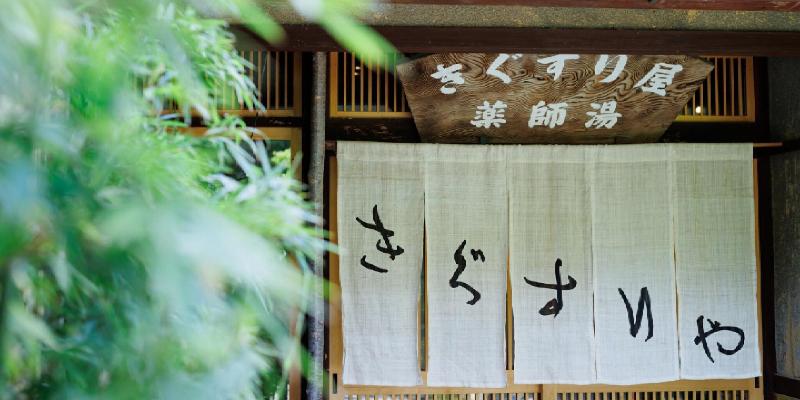 きぐすり屋
薬師湯
きぐすりや